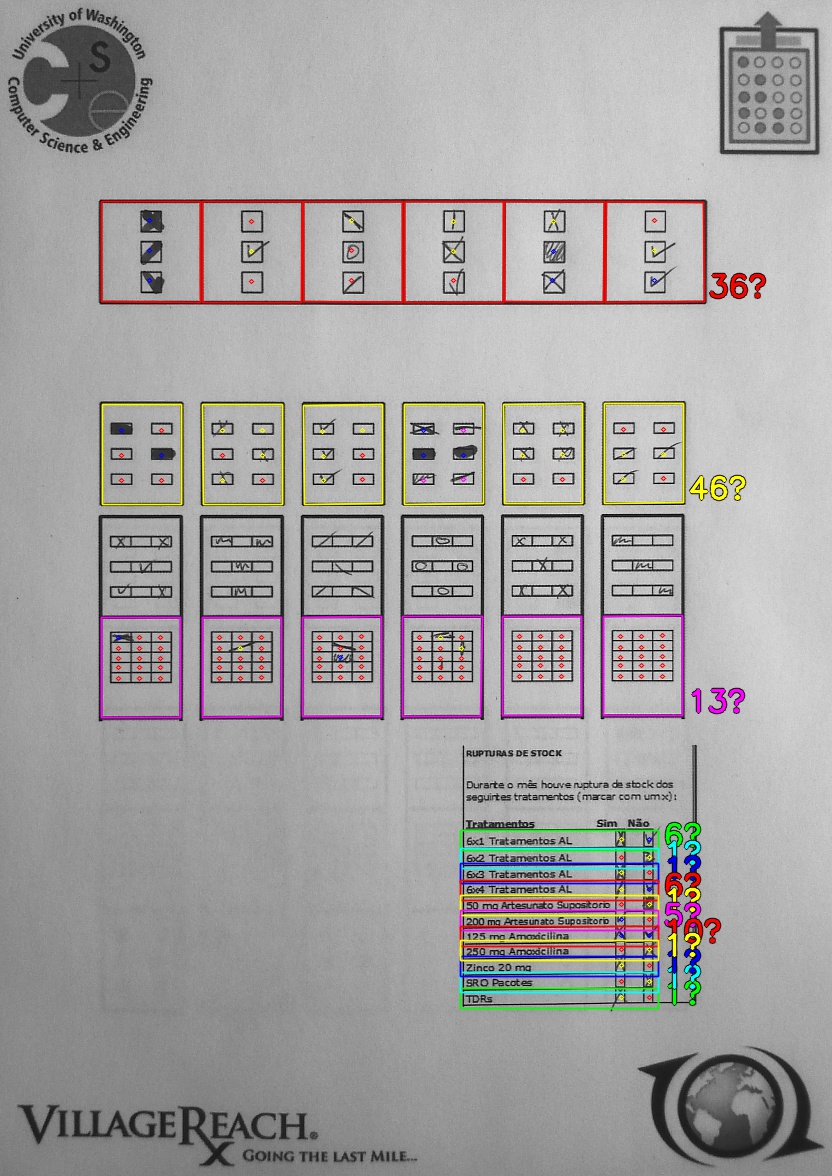 University of Washington
CSe
Computer Science & Engineering
36?
46?
13?
RUPTURAS DE STOCK
Durante o mês houve ruptura de stock dos
seguintes tratamentos (marcar com um x):
Tratamentos Sim Não
6x1 Tratamentos AL 6?
6x2 Tratamentos AL 1?
6x3 Tratamentos AL 1?
6x4 Tratamentos AL 6?
50 mg Artesunato Supositorio 1?
200 mg Artesunato Supositorio 5?
125 mg Amoxicilina 10?
250 mg Amoxicilina 1?
Zinco 20 mg 1?
SRO Pacotes 1?
TDRs 1?
VILLAGEREACH®
GOING THE LAST MILE...